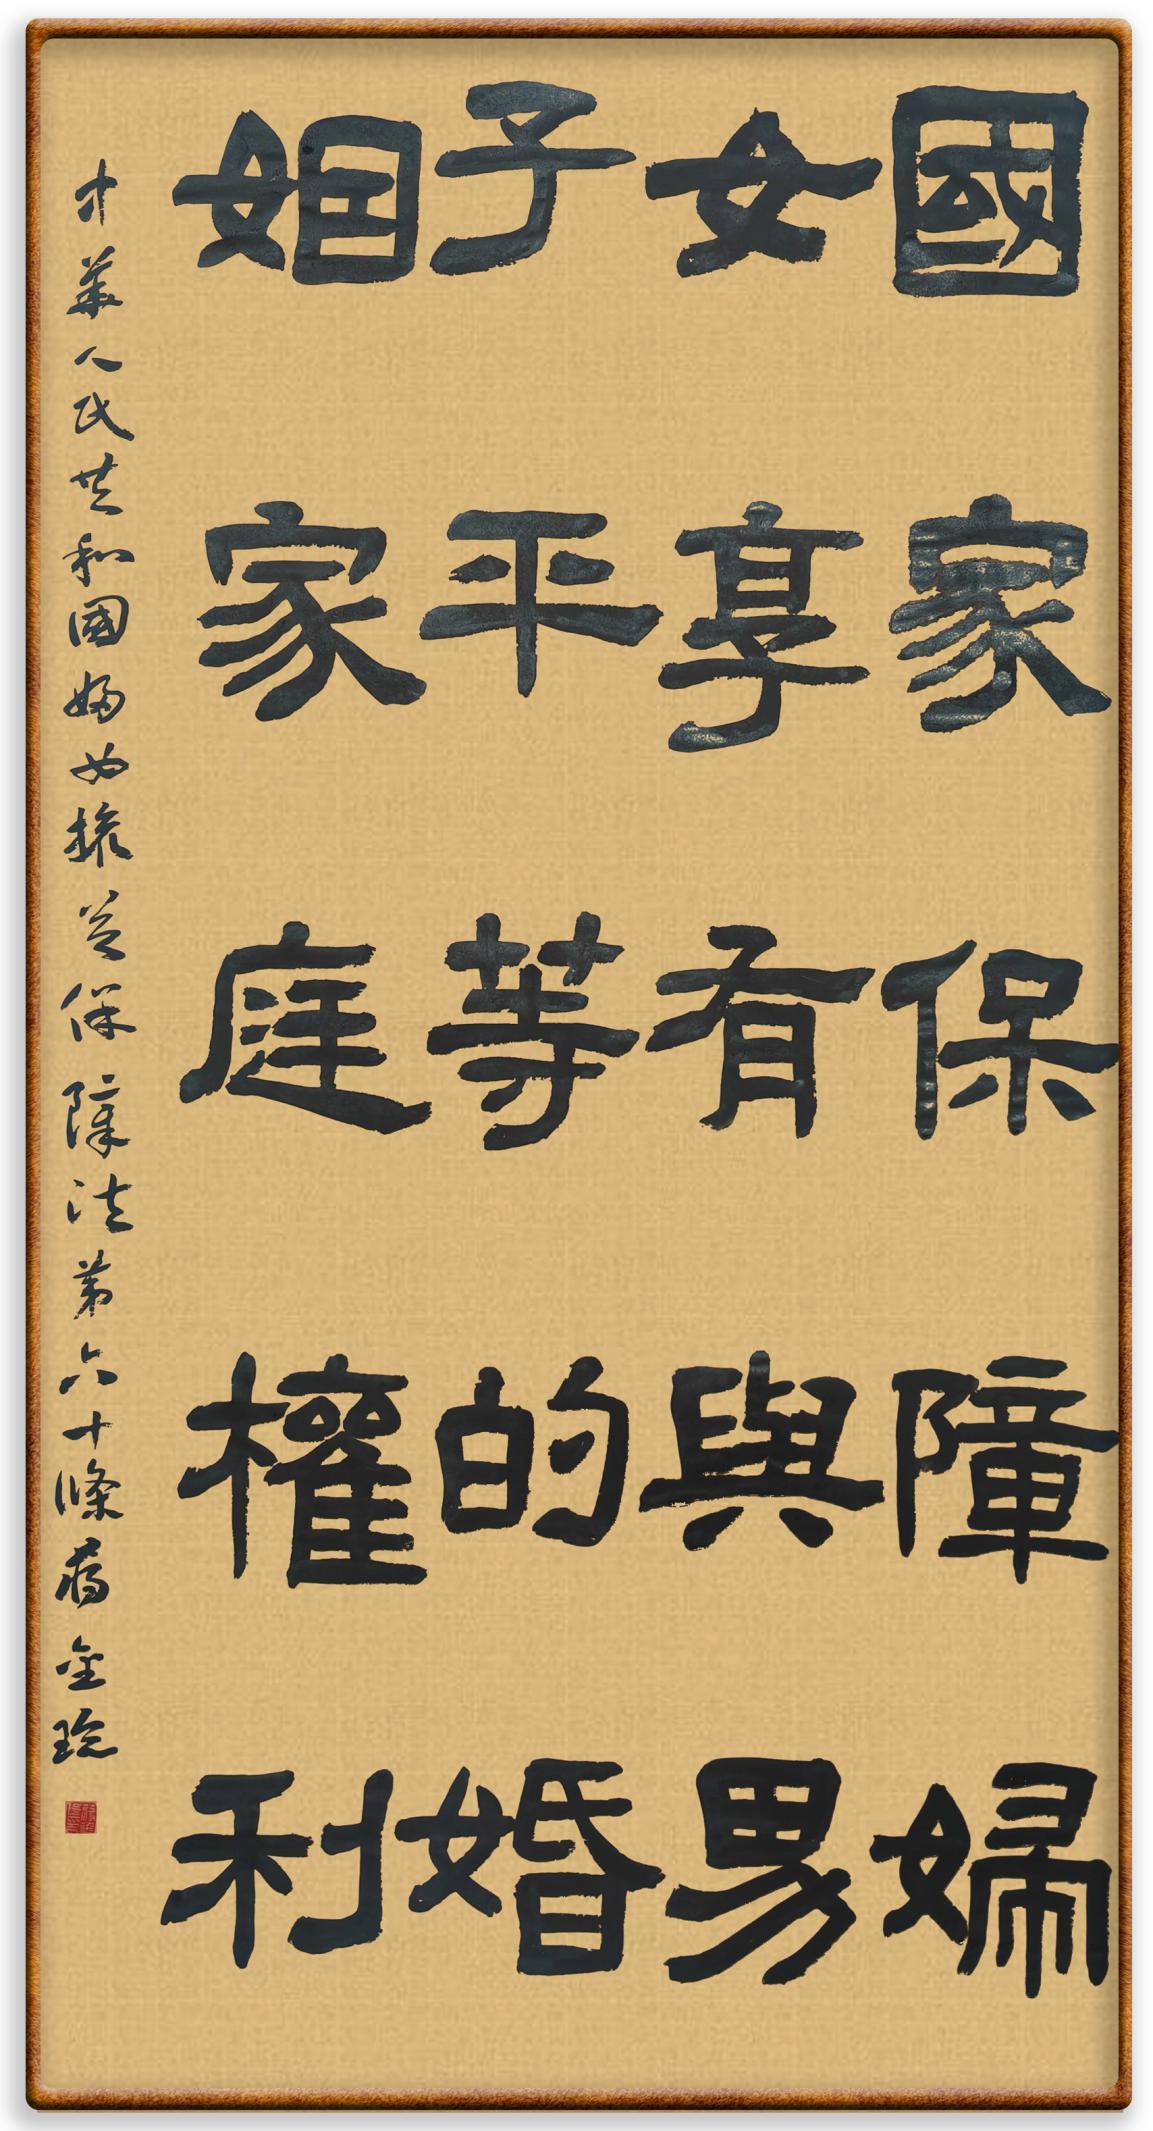 國家保障婦
女享有與男
子平等的婚
姻家庭權利
中華人民共和國婦女權益保障法第六十條蔣金琬